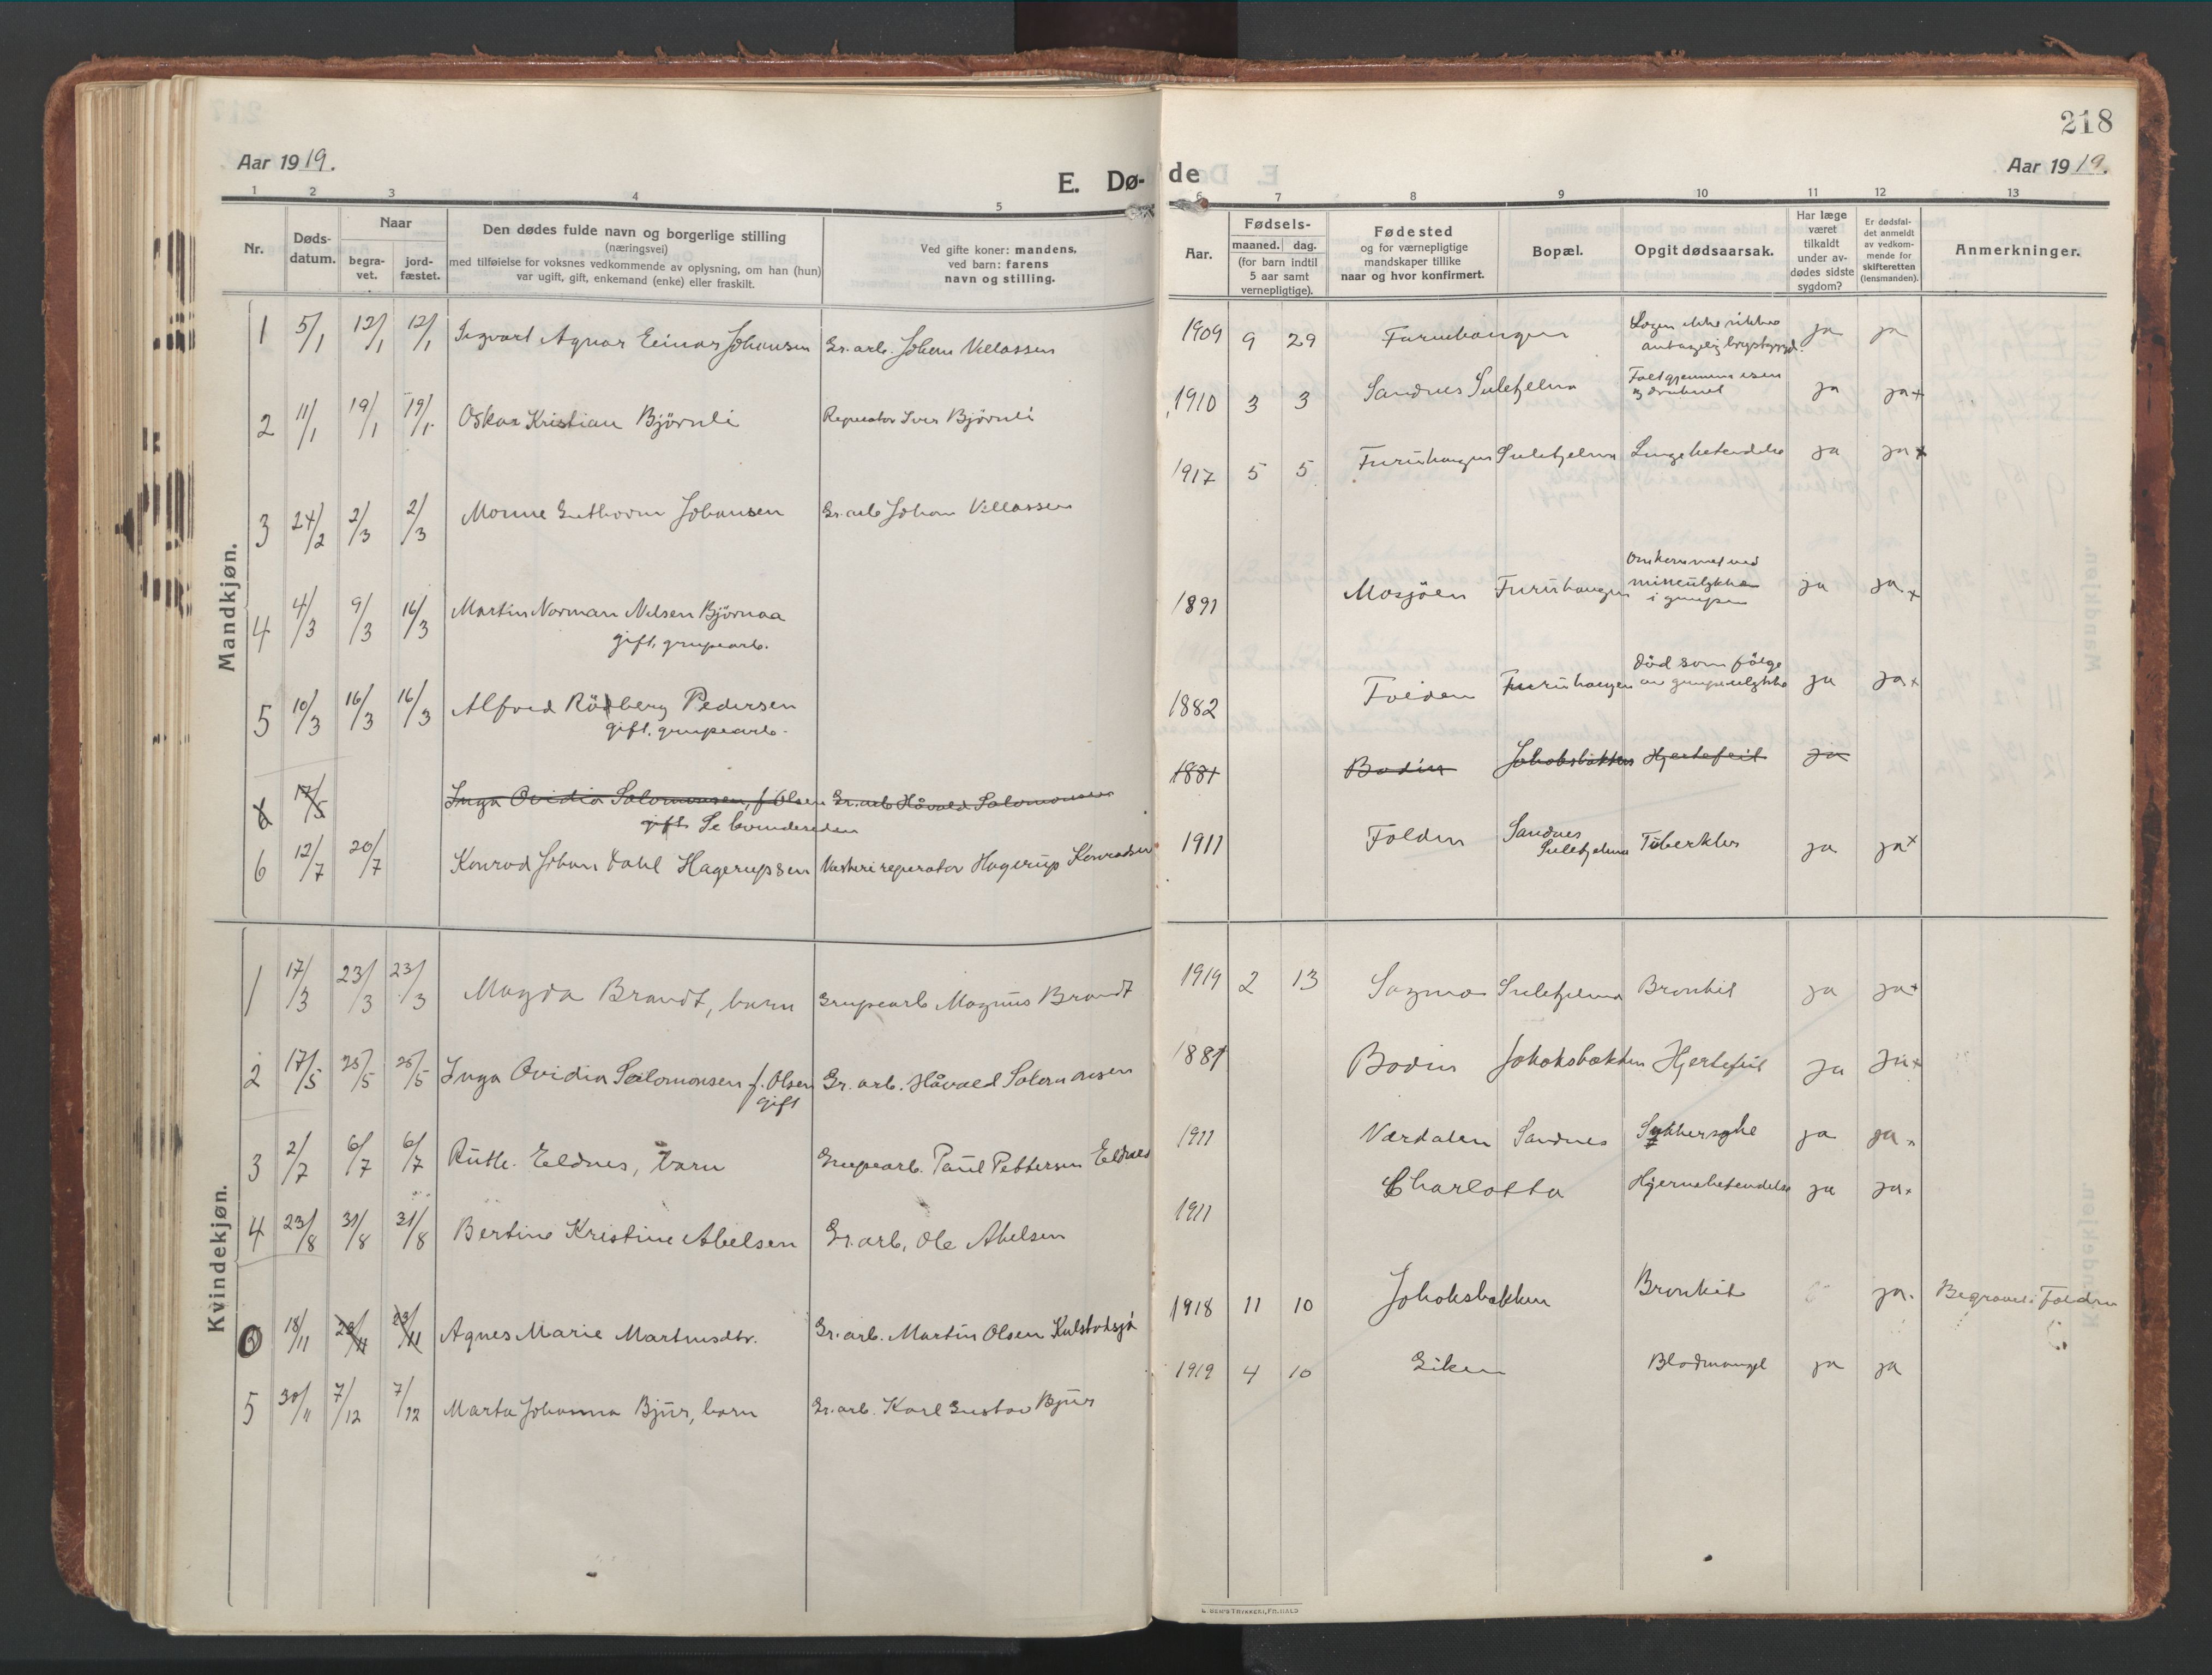 218
Aar 1919.
E. Dø-
de
Aar 1919.
1 2 3 4 5
6 7 8 9 10 11 12 13
Nr.
Døds-
datum.
Naar
begra-
vet.
jord-
fæstet.
Den dødes fulde navn og borgerlige stilling
(næringsvei)
med tilføielse for voksnes vedkommende av oplysning, om han (hun)
var ugift, gift, enkemand (enke) eller fraskilt.
Ved gifte koner: mandens,
ved barn: farens
navn og stilling.
Aar.
Fødsels-
maaned. dag.
(for barn indtil
5 aar samt
vernepligtige).
Fødested
og for værnepligtige
mandskaper tillike
naar og hvor konfirmert.
Bopæl.
Opgit dødsaarsak.
Har læge
været
tilkaldt
under av-
dødes sidste
sygdom?
Er dødsfal-
det anmeldt
av vedkom-
mende for
skifteretten
(lensmanden).
Anmerkninger.
Mandkjøn.
1 5/1 12/1 12/1 Ingvart Agnar Einar Johansen Gr. arb. Johan Villassen 1909 9 29 Furuhaugen Lægen ikke sikker antagelig brystsygd. ja ja
2 11/1 19/1 19/1 Oskar Kristian Björnli Reperatør Iver Björnli 1910 3 3 Sandnes Sulitjelma Falt gjennem isen og druknet ja ja x
3 24/2 2/3 2/3 Monne Guthorm Johansen Gr. arb Johan Villassen 1917 5 5 Furuhaugen Sulitjelma Lungebetendelse ja ja x
4 4/3 9/3 16/3 Martin Norman Nilsen Björnaa
gift, grupearb. 1891 Mosjöen Furuhaugen Omkommet ved mineulykke i grupen ja ja x
5 10/3 16/3 16/3 Alfred Rödberg Pedersen
gift. grupearb. 1882 Foiden Furuhaugen död som fölge av grupeulykke ja ja x
6 17/5 Inga Ovidia Salomonsen, f. Olsen Gr. arb Håvald Salomonsen 1881 Bodin Jakobsbakken Hjertefeil ja
gift Se kvindesiden
6 12/7 20/7 Konrad Johan Dahl Hagerupsen reperatør Hagerup Konradsen 1911 Folden Sandnes Sulitjelma Tuberklos ja ja x
Kvindekjøn.
1 17/3 23/3 23/3 Magda Brandt, barn Grupearb Magnus Brandt 1919 2 13 Sagmo Sulitjelma Bronkit ja ja x
2 17/5 25/5 25/5 Inga Ovidia Salomonsen f. Olsen Gr. arb. Håvald Salomonsen 1881 Bodin Jakobsbakken Hjertefeil ja ja x
gift
3 2/7 6/7 6/7 Ruth. Eldnes, barn Grupearb. Paul Pettersen Eldnes 1911 Værdalen Sandnes Sukkersyke ja ja x
4 23/8 31/8 31/8 Bertine Kristine Abelsen Gr. arb. Ole Abelsen 1911 Charlotta Hjernebetendelse ja ja x
0 18/11 23/11 23/11 Agnes Marie Martinsdtr. Gr. arb. Martin Olsen Kulstadsjö 1918 11 10 Jakobsbakken Bronkit ja. Begravet i Folden
5 30/11 7/12 7/12 Marta Johanna Bjur, barn Gr. arb. Karl Gustav Bjur 1919 4 10 Giken Blodmangel ja ja